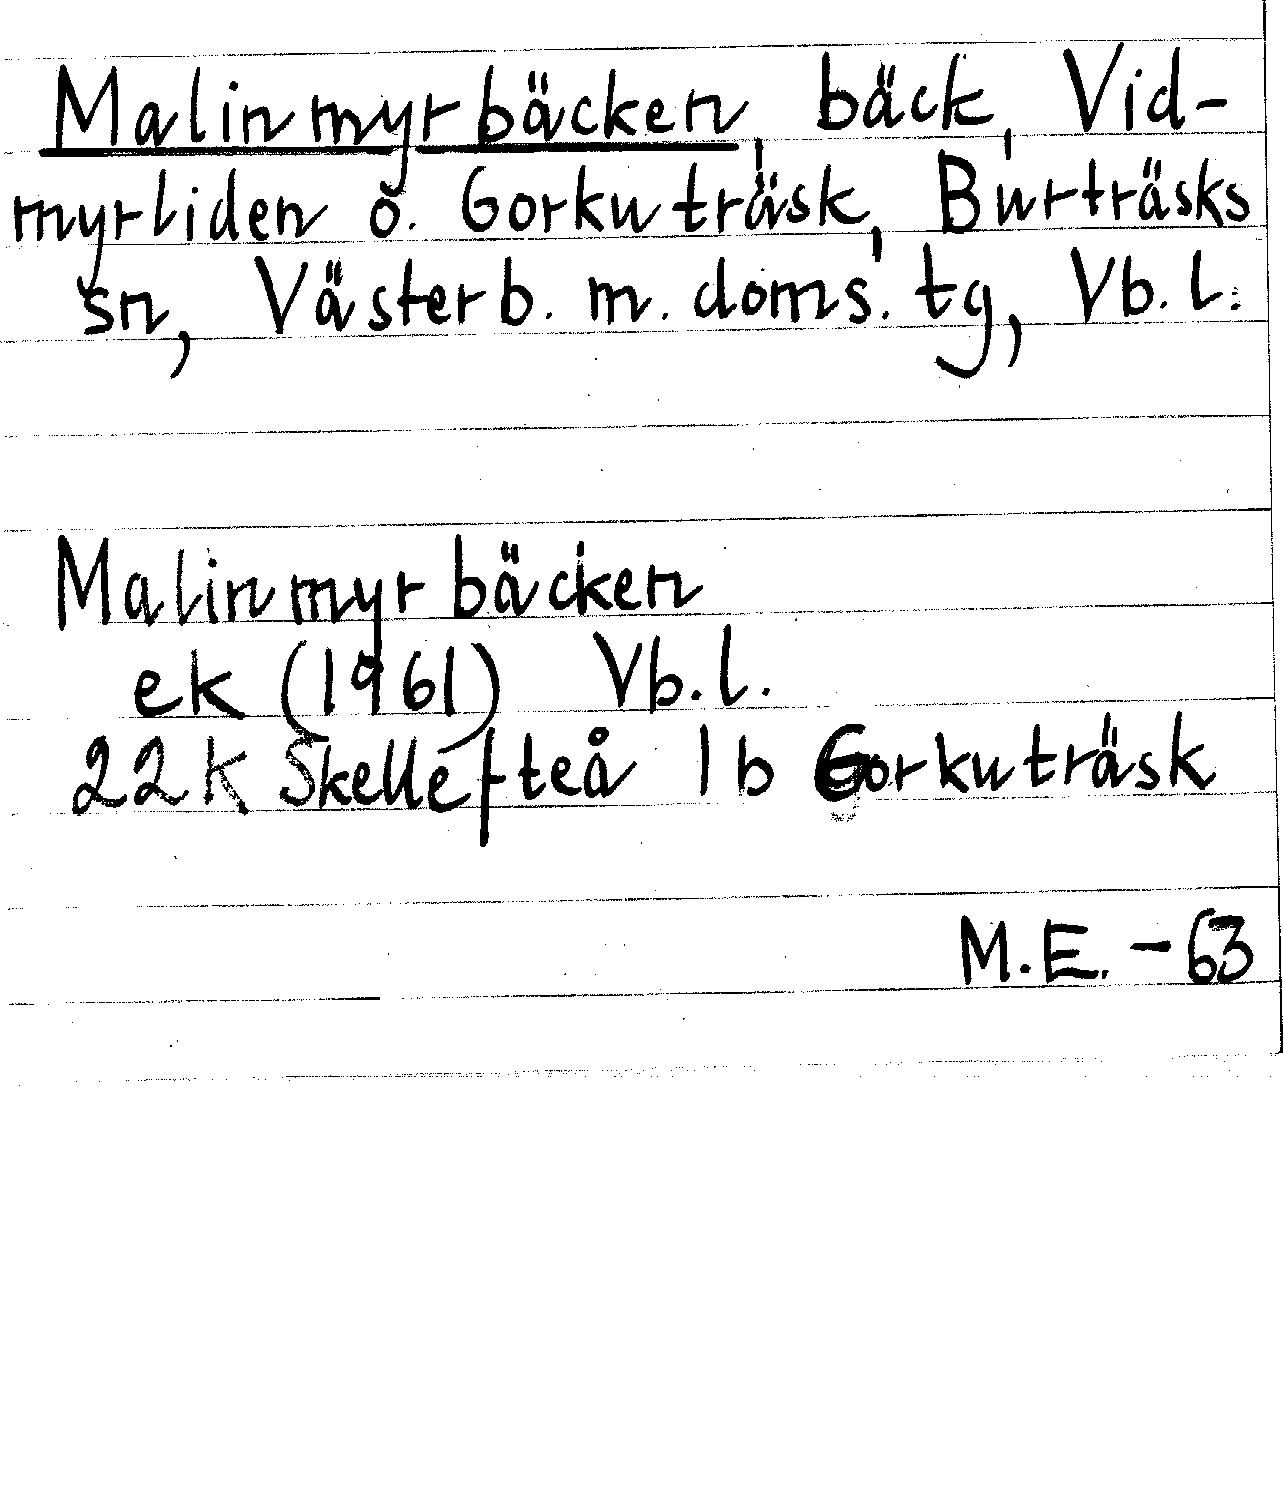 Malinmyrbäcken, bäck, Vid-
myrliden o. Gorkuträsk, Burträsks
sn, Västerb. m. doms. tg, Vb. l.
Malinmyrbäcken
ek (1961) Vb. l.
22K Skellefteå 1b Gorkuträsk
M.E. -63